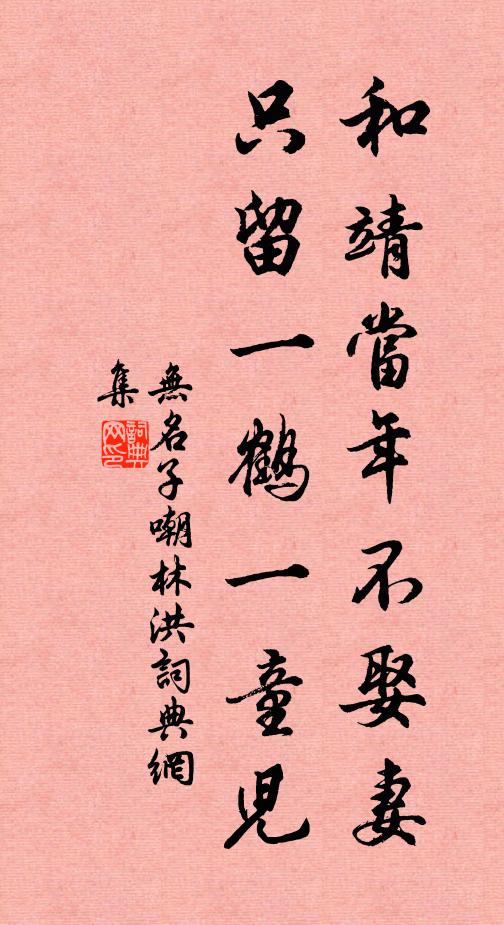 和靖當年不娶妻
只留一鶴一童兒
無名子嘲林洪詞典網
集
詞典
网印